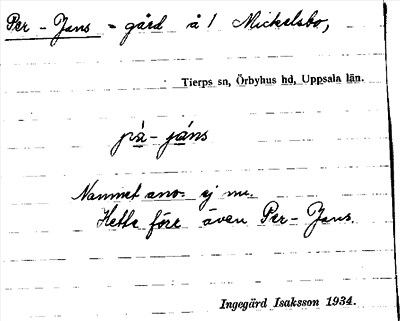 Per - Jans = gård å 1 Mickelsbo,
Tierps sn, Örbyhus hd, Uppsala län.
på- jáns
Namnet anv. ej nu.
Hette förr även Per - Jans.
Ingegärd Isaksson 1934.